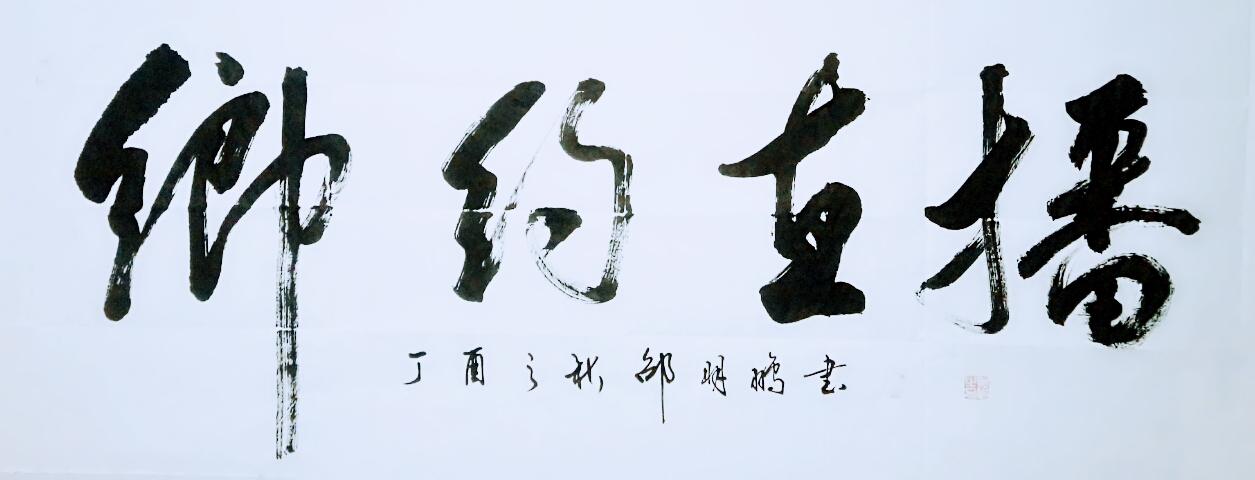 鄉约直播
丁酉之秋邵明鹏書